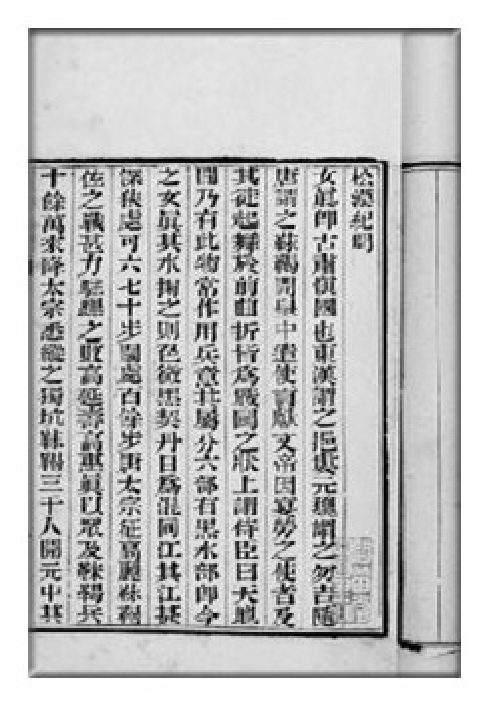 松漠紀聞
女眞卽古肅愼國也東漢謂之挹婁元魏謂之勿吉隨
唐謂之靺鞨開皇中遣使貢獻文帝因宴勞之使者及
其徒起舞於前曲折皆爲戰鬭之狀上謂侍臣曰天地
間乃有此物常作用兵意其屬分六部有黑水部卽今
之女眞其水掬之則色微黑契丹目爲混同江其江甚
深狹處可六七十步闊處百餘步唐太宗征高麗靺鞨
佐之戰甚力駐蹕之敗高延壽高惠眞以眾及靺鞨兵
十餘萬來降太宗悉縱之獨坑靺鞨三千人開元中其